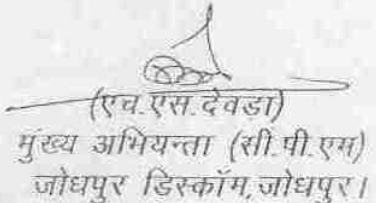 (एच.एस.देवडा)
मुख्य अभियन्ता (सी.पी.एम)
जोधपुर डिस्कॉम,जोधपुर।